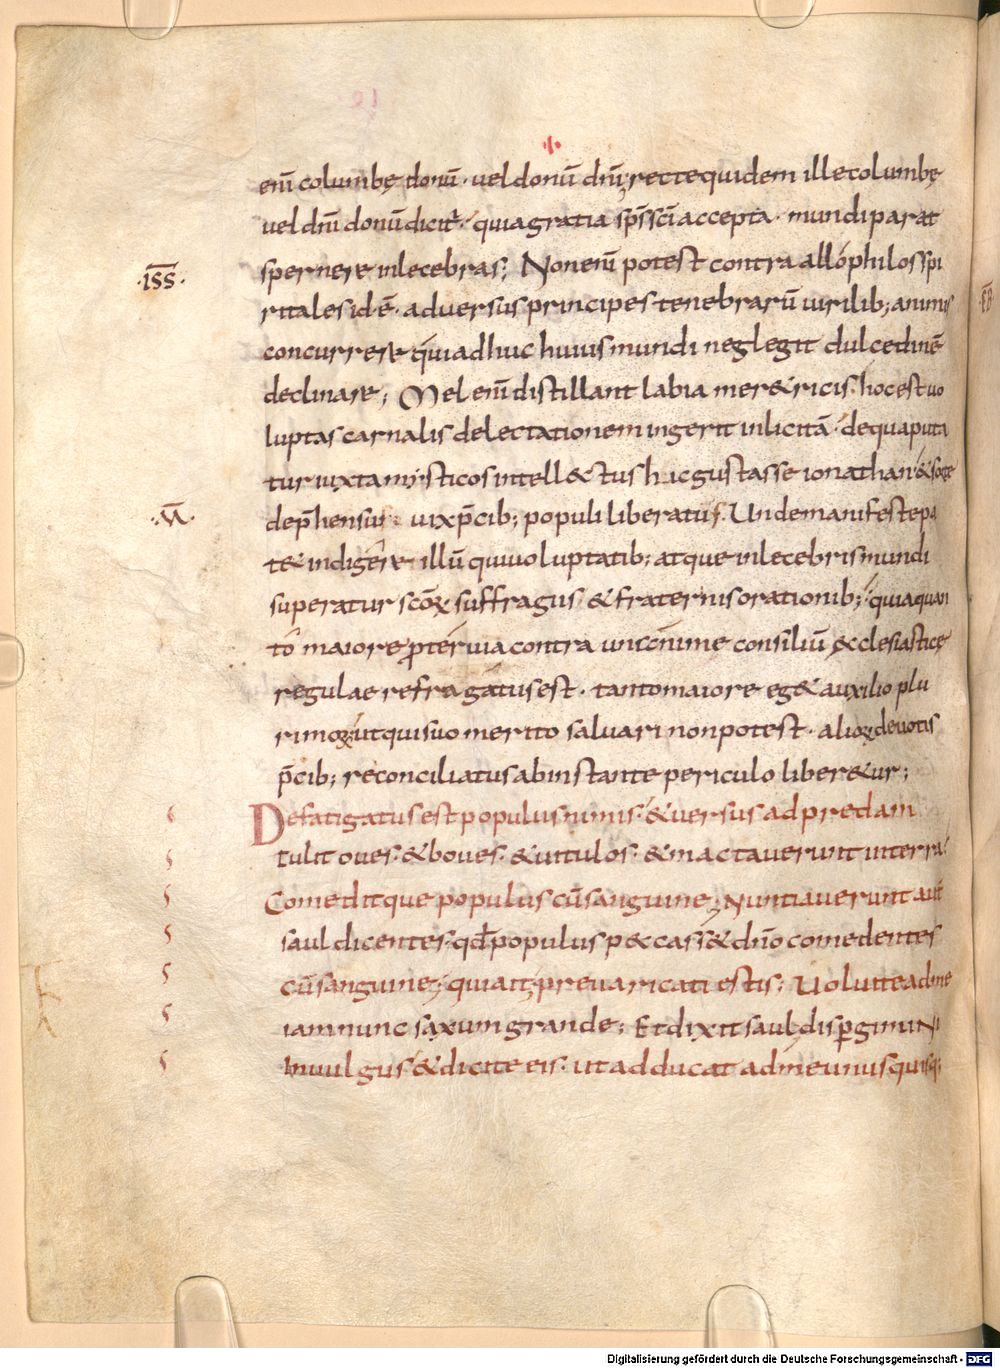 enī columbę donū · uel donū dnī; recte quidem ille columbę
uel dnī donū dicit᷑ · quia gratia sps̄ scī accepta · mundi parat
·iss̄· spernere inlecebras; Non enī potest contra allophilos spi
ritales id · ē · aduersus principes tenebrarū uirilib; animis
concurrere qui adhuc huius mundi neglegit dulcedinē
declinare; Mel enī distillant labia mer&ricis · hoc est uo
luptas carnalis delectationem ingerit inlicitā · de qua puta
tur iuxta mysticos intell&tus hic gustasse ionathan · & sorte
·ū· dep̄hensus uix p̄cib; populi liberatus · Unde manifeste pa
t& indigere illū qui uoluptatib; atque inlecebris mundi
superatur scōꝝ suffragiis & fraternis orationib; · quia quan
tō maiore ꝓteruia contra unicnime consiliū ęcclesiasticę
regulae refragatus est · tanto maiore eg& auxilio plu
rimoꝝ ut qui suo merito saluari non potest · alioꝝ deuotis
p̄cib; reconciliatus ab instante periculo liber&ur;
Defatigatus est populus nimis · & uersus ad predam
tulit oues · & boues · & uitulos · & mactauerunt in terra ·
Comeditque populus cū sanguine; Nuntiauerunt aūt
saul dicentes · qđ populus p&cass& dnō comedentes
cū sanguine; qui ait; preuaricati estis; Uoluite ad me
iam nunc saxum grande; Et dixit saul, disꝑgimini
In uulgus & dicite eis · ut adducat ad me unusquisq;
Digitalisierung gefördert durch die Deutsche Forschungsgemeinschaft - DFG